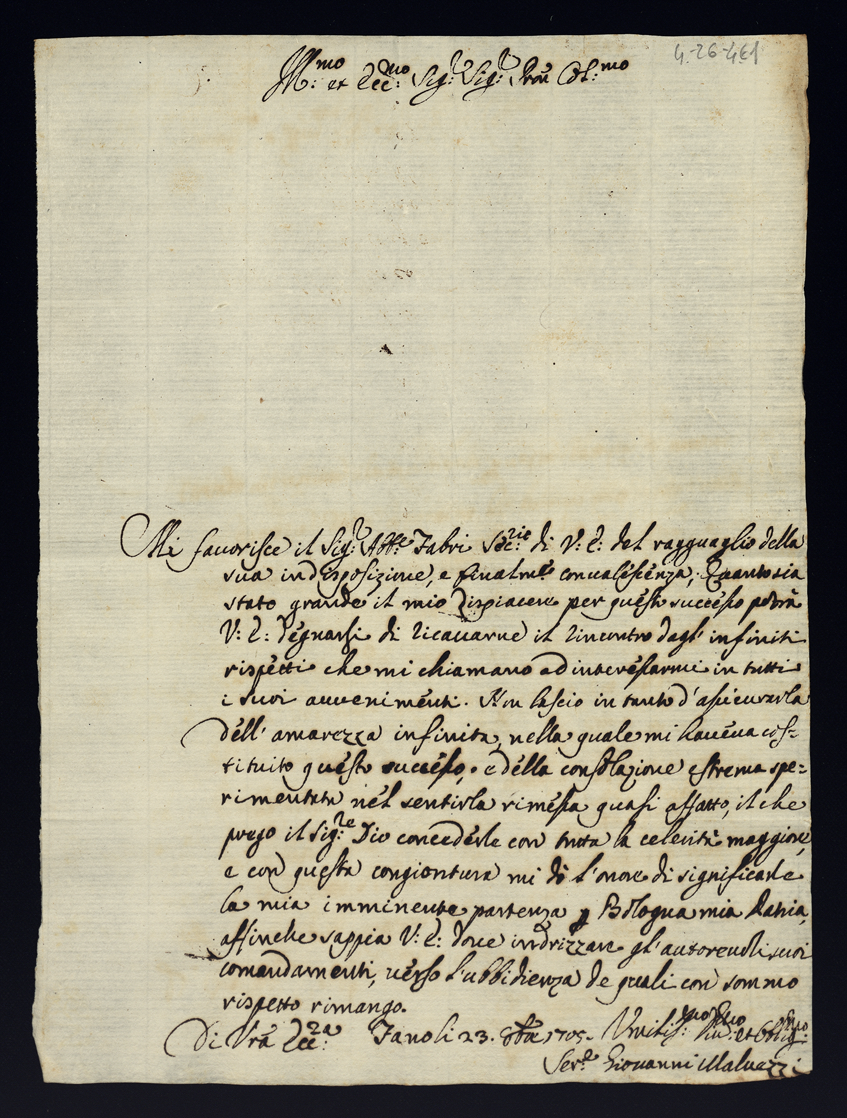 4-26-461
Ill:mo et Ecc:mo Sig:r Sig:r Pron Col:mo
Mi fauorisce il Sig:r Abb:e Fabri Sec:rie di V: E: del ragguaglio della
sua indisposizione, e finalm:te conualescenza; Quanto sia
stato grande il mio dispiacere per questo successo potrà
V: E: degnarsi di ricauarne il rincontro dagl' infiniti
rispetti che mi chiamano ad interessarmi in tutti
i suoi auuenimenti. Non lascio in tanto d'assicurarla
dell' amarezza infinita, nella quale mi haueua cos=
tituito questo successo, e della consolazione estrema spe=
rimentata nel sentirla rimessa quasi affatto, il che
prego il Sig:re Dio concederle con tutta la celerità maggiore,
e con questa congiontura mi dò l'onore di significarle
la mia imminente partenza p Bologna mia Patria,
affinche sappia V: E: doue indrizzare gl' autoreuoli suoi
comandamenti, uerso l'ubbidienza de quali con sommo
rispetto rimango.
Di Vra Ecc:za Fanoli 23. 8bre 1705. Umilis:mo Diu:mo et Oblig:mo
Ser:e Giouanni Maluezzi